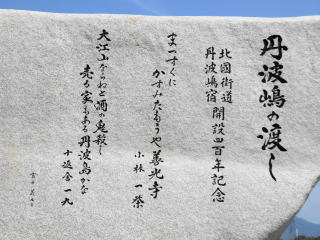 丹波嶋の渡し
北國街道
丹波嶋宿
開設四百年記念
まっすぐに
かすみたなびくや善光寺
小林一茶
大江山ならねど酒の鬼殺し
売る家もある丹波島かな
十返舎一九